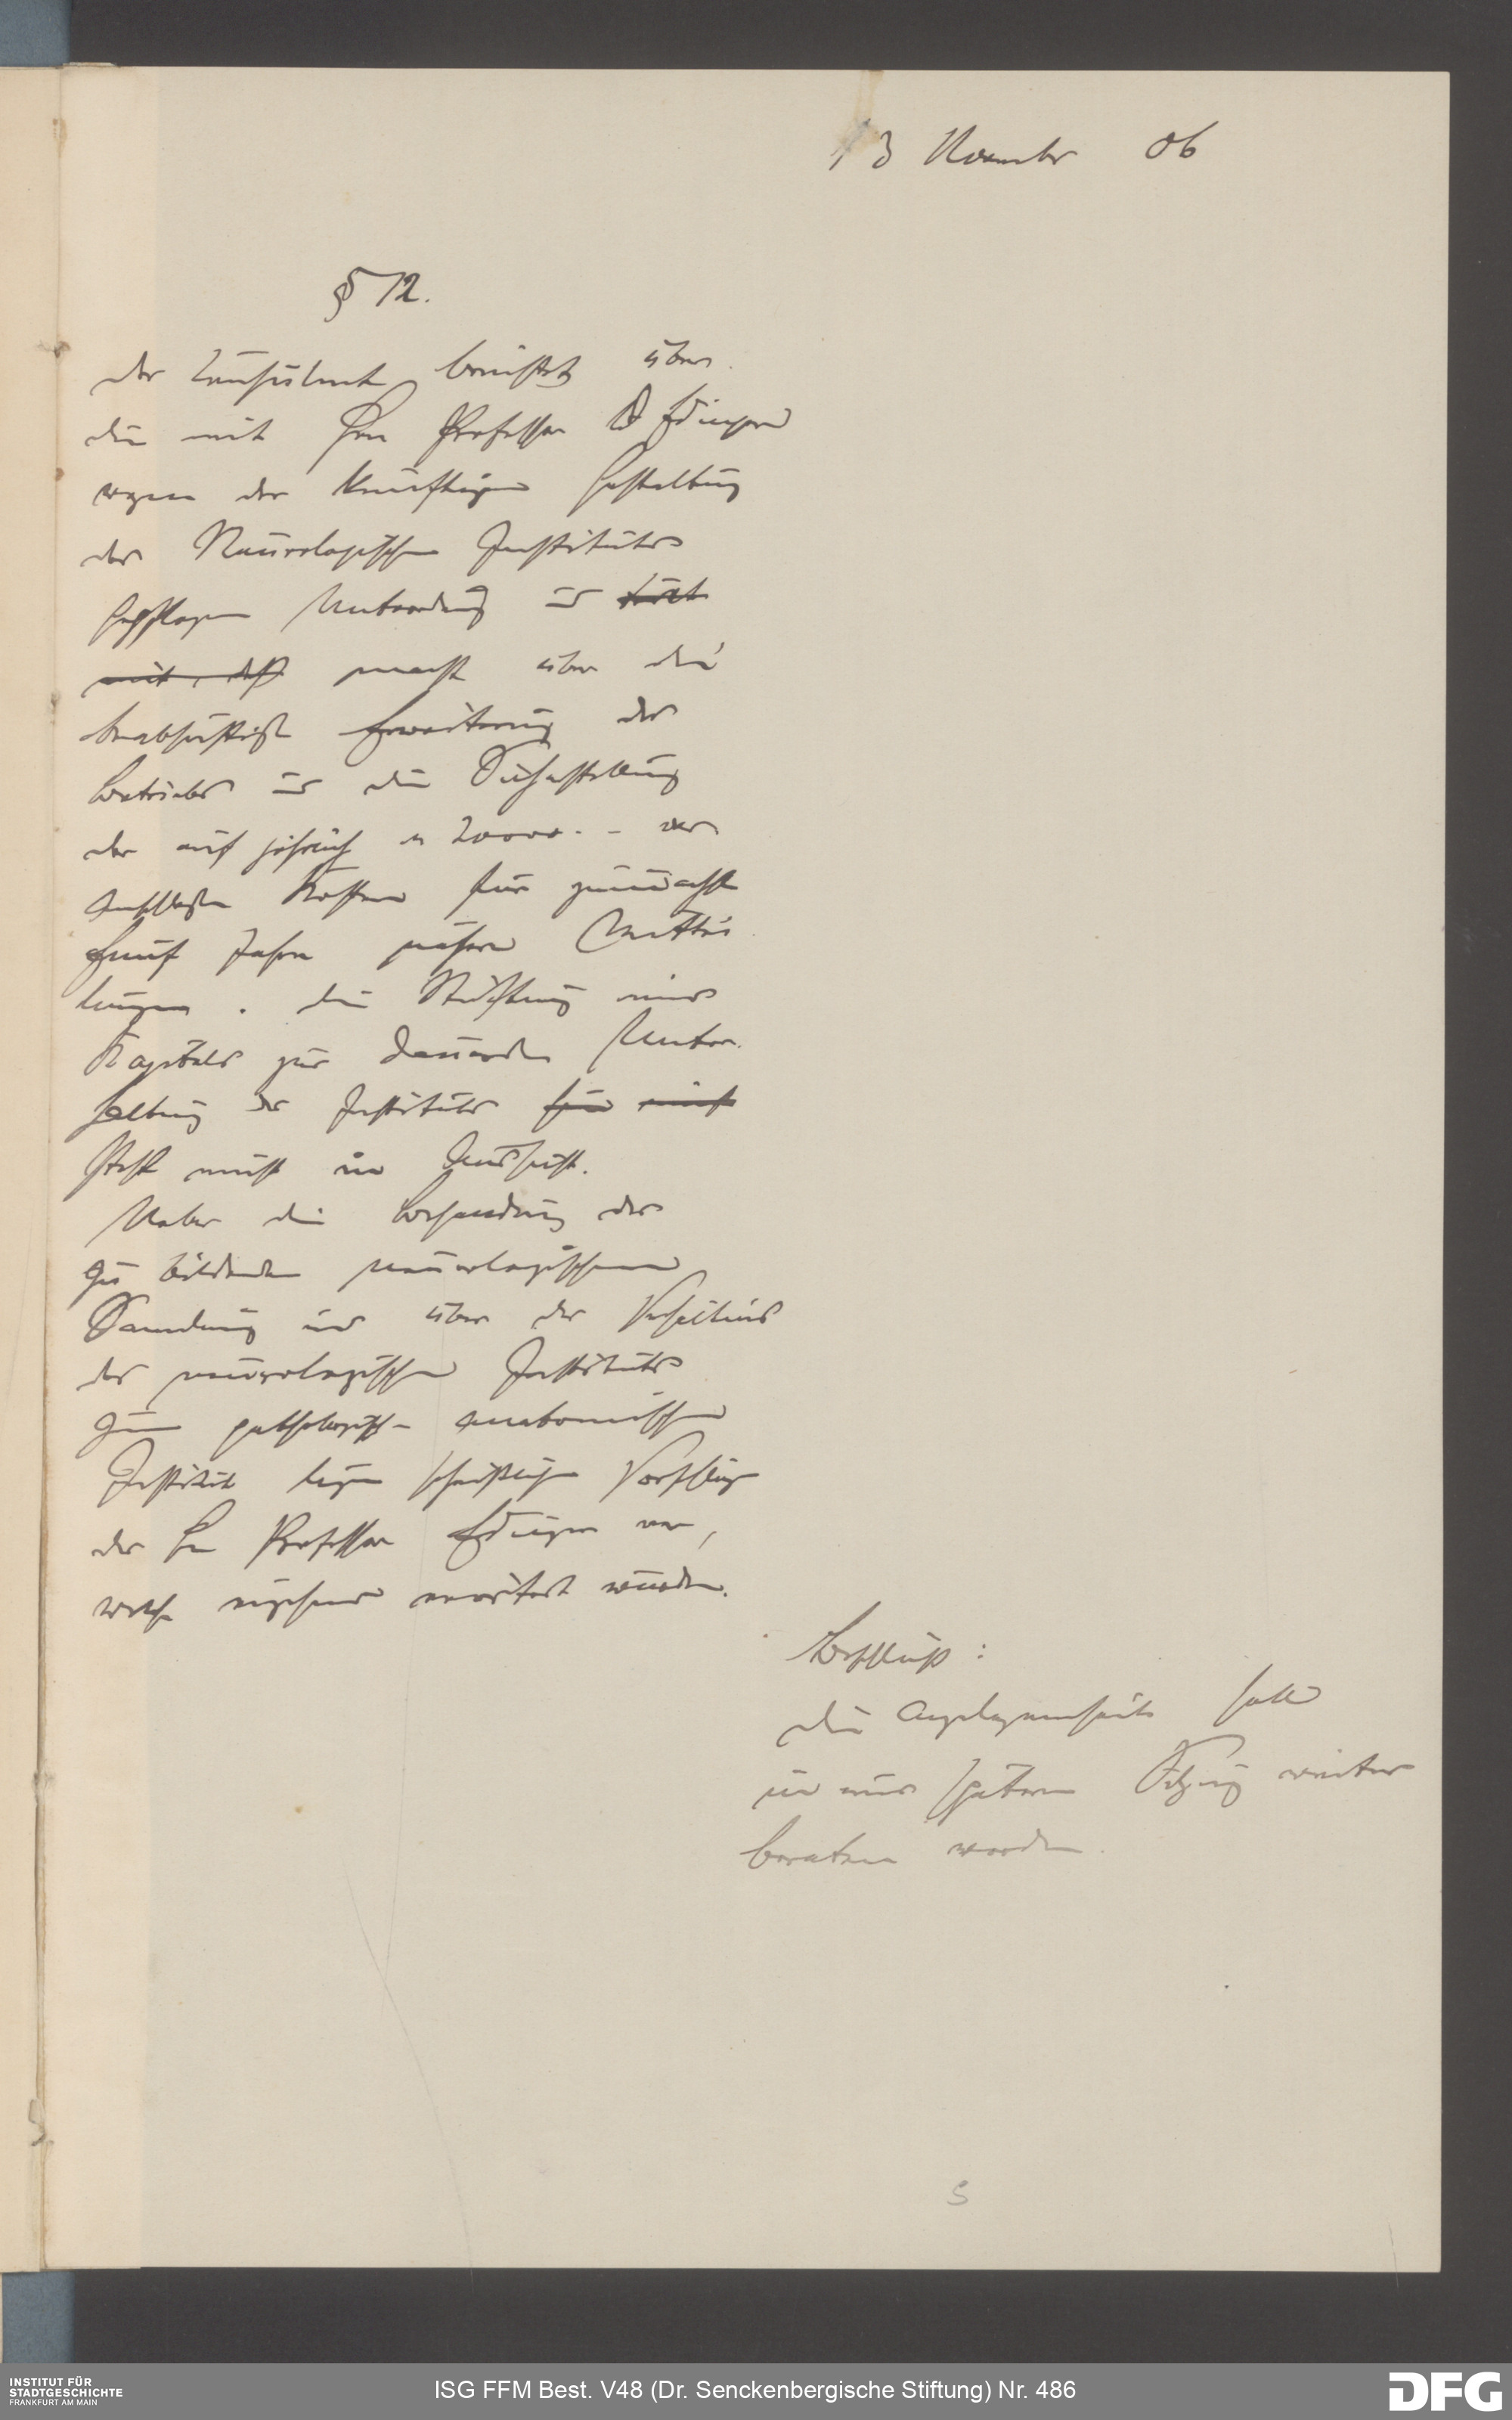 13 November 06
§ 12.
Der Consulent berichtet über
die mit Herrn Professor Dr Edinger
wegen der künftigen Gestaltung
des Neurologischen Instituts
gepflogene Unterredung u
mit, daß macht über die
beabsichtigte Erweiterung des
Betriebes u die Sicherstellung
der auf jährlich M 20000.- ver
anschlagten Kosten für zunächst
fünf Jahre nähere Mittei
lungen. Die Stiftung eines
Kapitals zur dauernden Unter
haltung des Instituts
steht nicht in Aussicht.
Ueber die Behandlung der
zu bildenden neurologischen
Sammlung und über das Verhältnis
des neurologischen Instituts
zum pathologisch-anatomischen
Institut liegen schriftliche Vorschläge
des Hn Professor Edinger vor,
welche eingehend erörtert wurden.
Beschluß:
die Angelegenheit soll
in einer späteren Sitzung weiter
beraten werden.
5
INSTITUT FÜR
STADTGESCHICHTE
FRANKFURT AM MAIN
ISG FFM Best. V48 (Dr. Senckenbergische Stiftung) Nr. 486
DFG